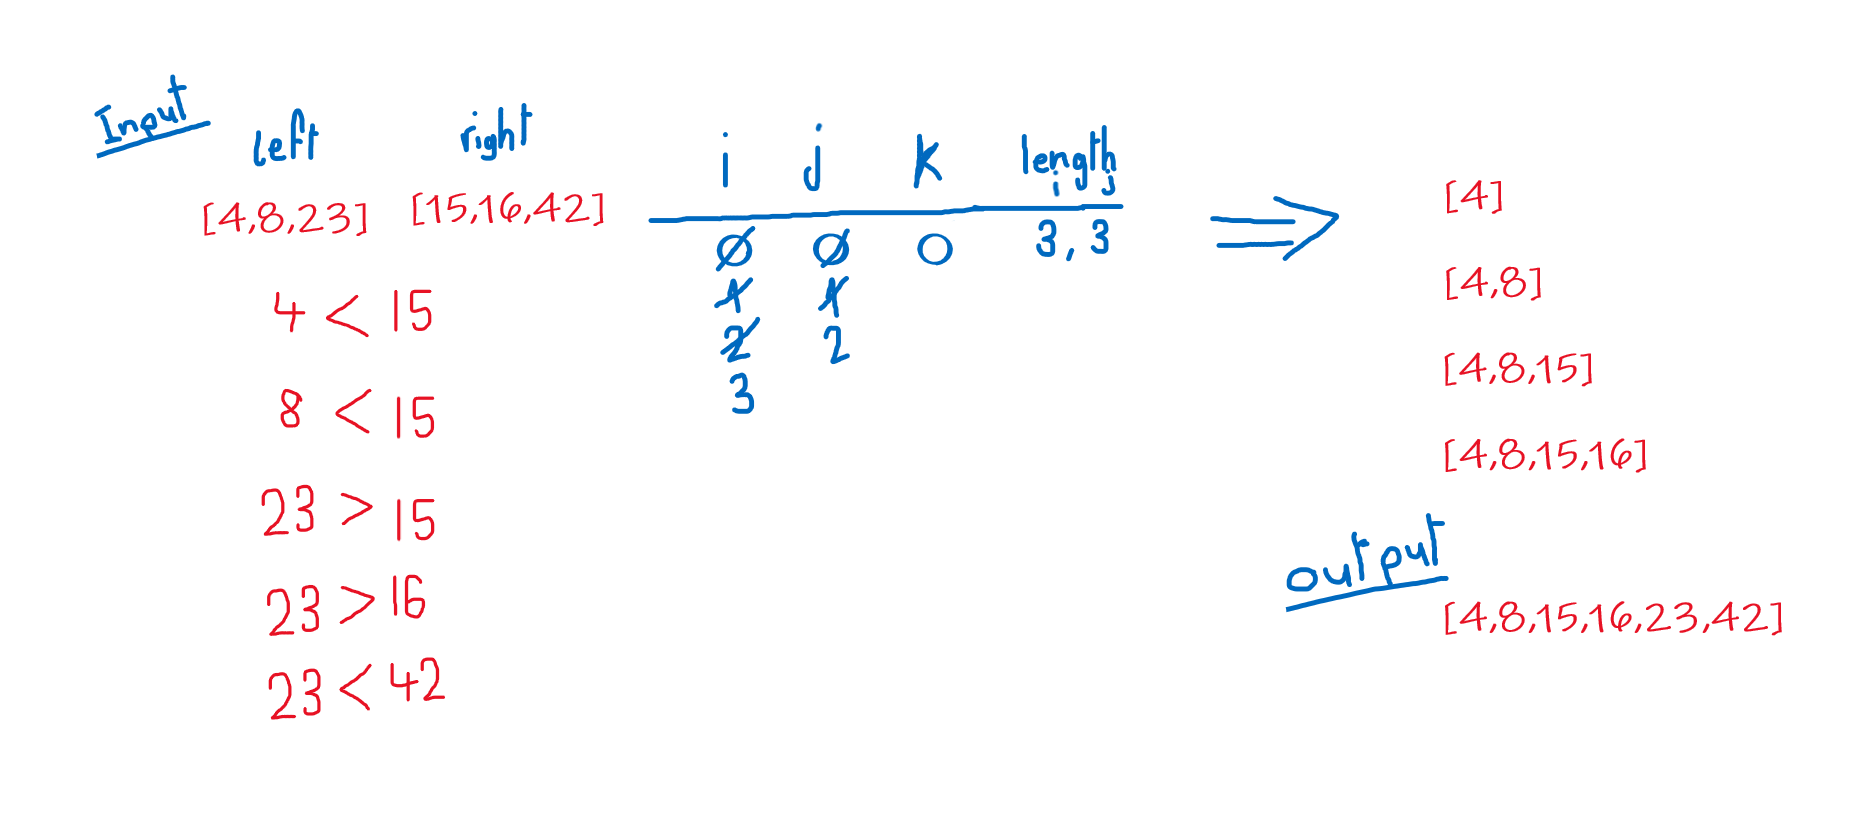 Input
left right
[4,8,23] [15,16,42]
4 < 15
8 < 15
23 > 15
23 > 16
23 < 42
i j k length
i j
0 0 0 3, 3
1 1
2 2
3
[4]
[4,8]
[4,8,15]
[4,8,15,16]
output
[4,8,15,16,23,42]